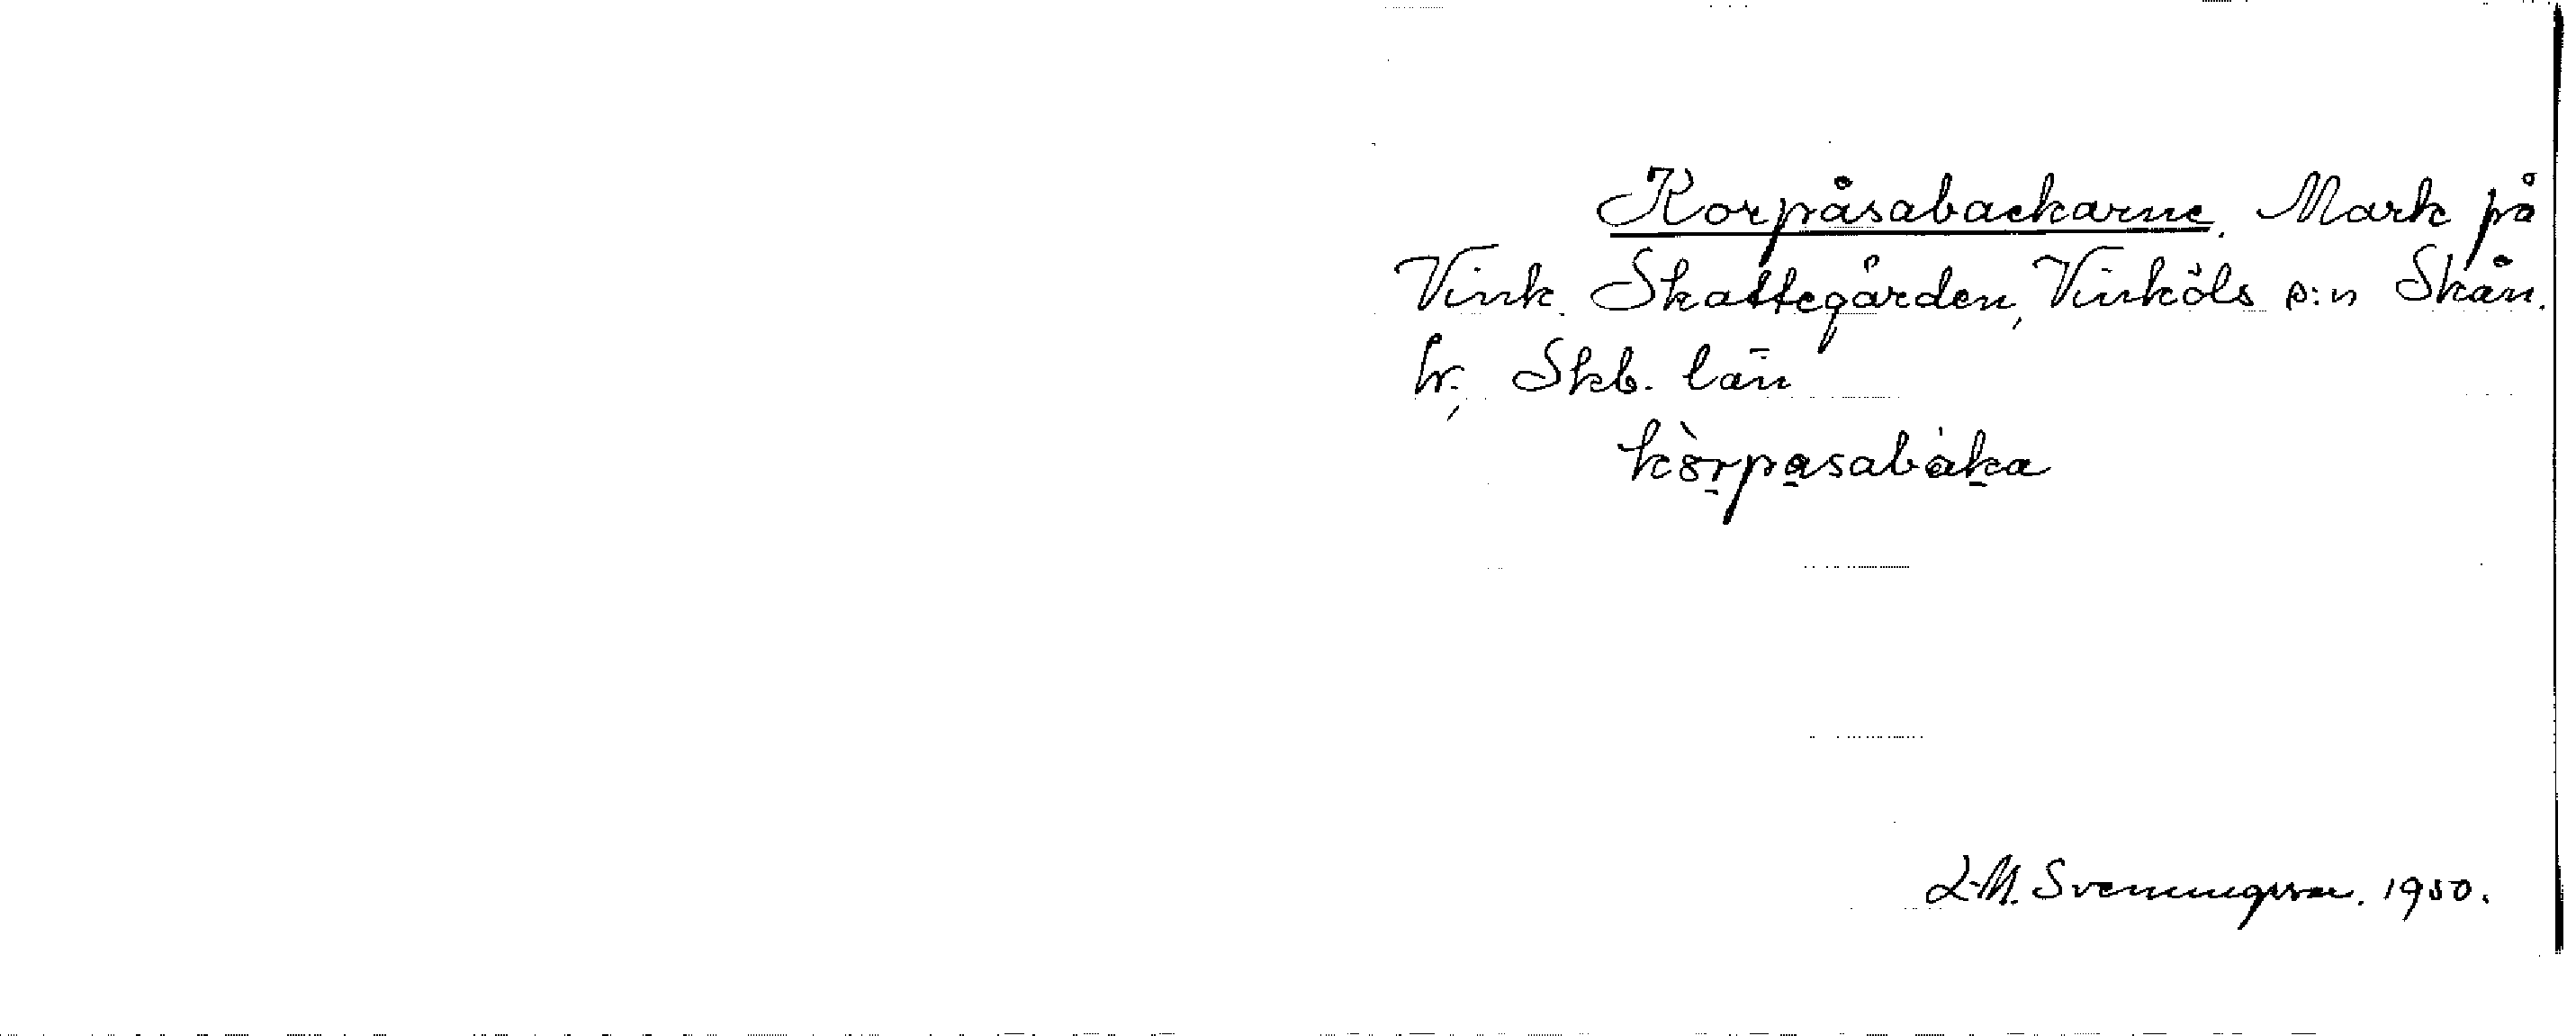 Korpåsabackarne. Mark på
Vink. Skattegården, Vinköls s:n Skån.
hr., Skb. län
kòrpasabaka
L-M. Svenungsson. 1950.